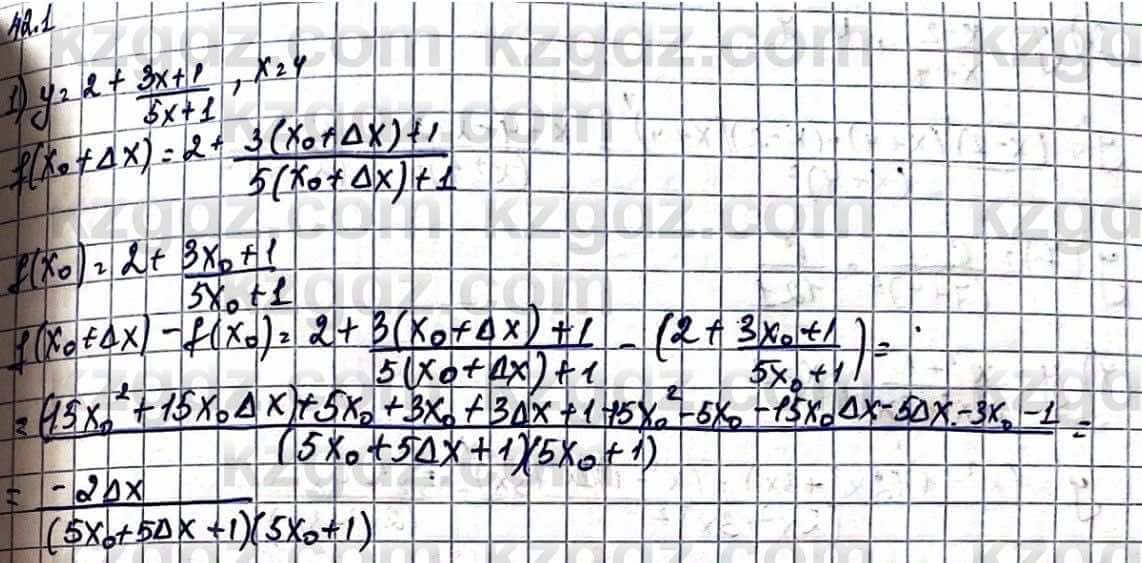 42.1
1) y = 2 + (3x+1)/(5x+1), x=4
f(x₀+Δx) = 2 + (3(x₀+Δx)+1)/(5(x₀+Δx)+1)
f(x₀) = 2 + (3x₀+1)/(5x₀+1)
f(x₀+Δx) - f(x₀) = 2 + (3(x₀+Δx)+1)/(5(x₀+Δx)+1) - (2 + (3x₀+1)/(5x₀+1)) =
= (15x₀² + 15x₀Δx) + 5x₀ + 3x₀ + 3Δx + 1 - 15x₀² - 5x₀ - 15x₀Δx - 5Δx - 3x₀ - 1 / (5x₀+5Δx+1)(5x₀+1) =
= -2Δx / (5x₀+5Δx+1)(5x₀+1)
kzgdz.com